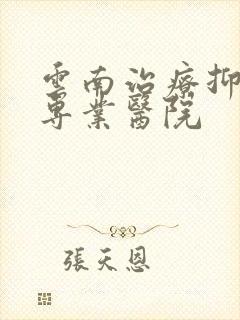 雲南治療抑
專業醫院
張天恩